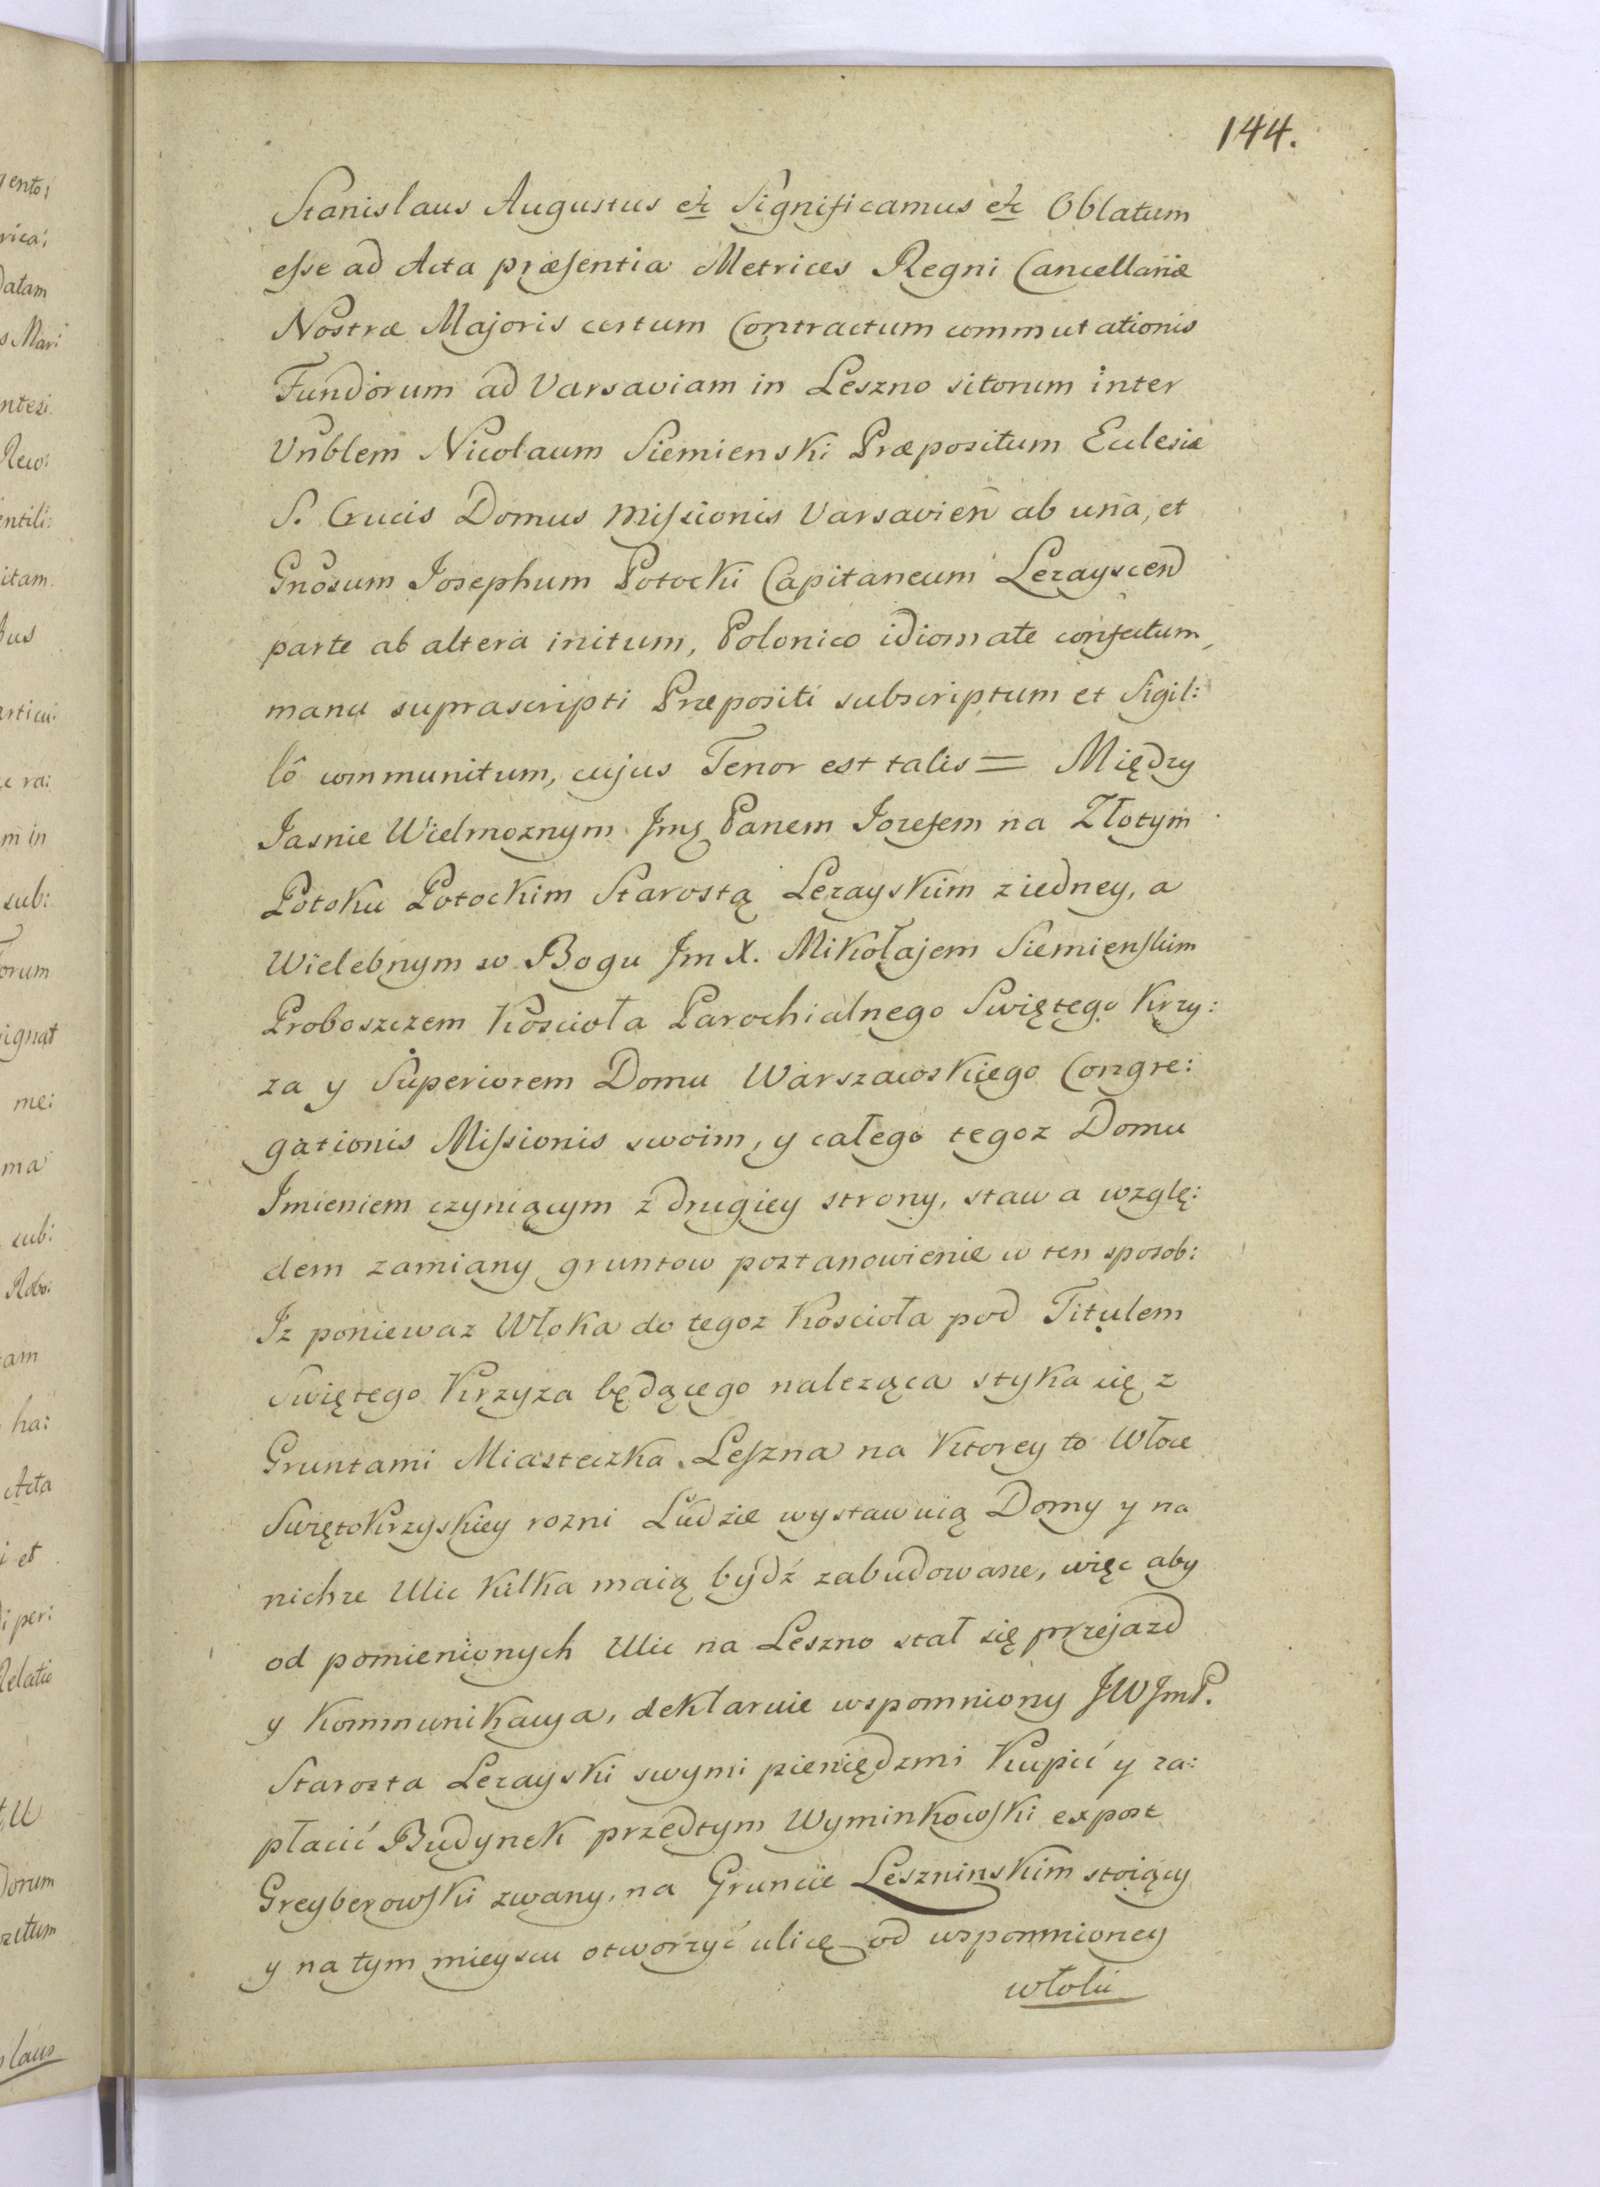 144.
Stanislaus Augustus etc Significamus etc Oblatum
eſse ad Acta præſentia Metrices Regni Cancellariæ
Nostræ Majoris certum Contractum commutationis
Fundorum ad Varsaviam in Leszno sitorum inter
Vnblem Nicolaum Siemienski Præpositum Eclesiæ
S. Crucis Domus Miſsionis Varsavien ab una, et
Gnosum Josephum Potocki Capitaneum Lezayscen
parte ab altera initum, Polonico idiomate confectum,
manu suprascripti Præpositi subscriptum et Sigil:
lô communitum, cujus Tenor est talis = Między
Jasnie Wielmoznym Jmę Panem Jozefem na Złotym
Potoku Potockim Starostą Lezayskim z iedney, a
Wielebnym w Bogu Jm X. Mikołajem Siemienſkim
Proboszczem Koscioła Parochialnego Swiętego Krzy:
za y Superiorem Domu Warszawskiego Congre:
gationis Miſsionis swoim, y całego tegoz Domu
Jmieniem czyniącym z drugiey strony, stawa wzglę:
dem zamiany gruntow postanowienie w ten sposob:
Iz poniewaz Włoka do tegoz Koscioła pod Titulem
Swiętego Krzyza będącego naleząca styka się z
Gruntami Miasteczka Leſzna na Ktorey to Włoce
Swiętokrzyskiey rozni Ludzie wystawuią Domy y na
nichze Ulic kilka maią bydź zabudowane, więc aby
od pomienionych Ulic na Leszno stał się przejazd
y Kommunikacya, deklaruie wspomniony JW JmP.
Starosta Lezayski swymi pieniędzmi Kupić y za:
płacić Budynek przedtym Wyminkowſki expost
Greyberowſki zwany, na Gruncie Leszninskim stoiący
y na tym mieyscu otworzyć ulicę od wspomnioney
włoki